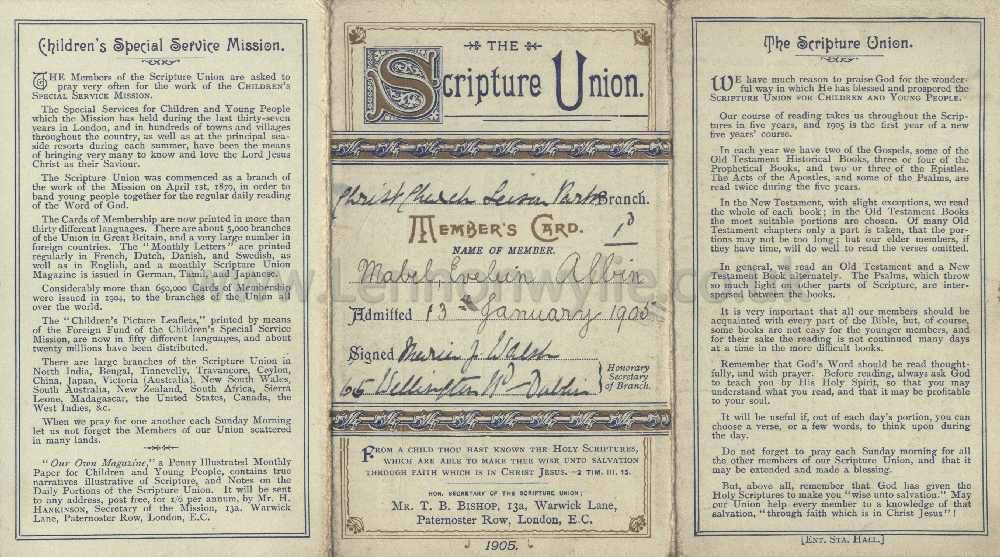 Children's Special Service Mission.
THE Members of the Scripture Union are asked to
pray very often for the work of the CHILDREN'S
SPECIAL SERVICE MISSION.
The Special Services for Children and Young People
which the Mission has held during the last thirty-seven
years in London, and in hundreds of towns and villages
throughout the country, as well as at the principal sea-
side resorts during each summer, have been the means
of bringing very many to know and love the Lord Jesus
Christ as their Saviour.
The Scripture Union was commenced as a branch of
the work of the Mission on April 1st, 1879, in order to
band young people together for the regular daily reading
of the Word of God.
The Cards of Membership are now printed in more than
thirty different languages. There are about 5,000 branches
of the Union in Great Britain, and a very large number in
foreign countries. The "Monthly Letters" are printed
regularly in French, Dutch, Danish, and Swedish, as
well as in English, and a monthly Scripture Union
Magazine is issued in German, Tamil, and Japanese.
Considerably more than 650,000 Cards of Membership
were issued in 1904, to the branches of the Union all
over the world.
The "Children's Picture Leaflets," printed by means
of the Foreign Fund of the Children's Special Service
Mission, are now in fifty different languages, and about
twenty millions have been distributed.
There are large branches of the Scripture Union in
North India, Bengal, Tinnevelly, Travancore, Ceylon,
China, Japan, Victoria (Australia), New South Wales,
South Australia, New Zealand, South Africa, Sierra
Leone, Madagascar, the United States, Canada, the
West Indies, &c.
When we pray for one another each Sunday Morning
let us not forget the Members of our Union scattered
in many lands.
"Our Own Magazine," a Penny Illustrated Monthly
Paper for Children and Young People, contains true
narratives illustrative of Scripture, and Notes on the
Daily Portions of the Scripture Union. It will be sent
to any address, post free, for 1/6 per annum, by Mr. H.
HANKINSON, Secretary of the Mission, 13A, Warwick
Lane, Paternoster Row, London, E.C.
THE
Scripture Union.
Christ Church Leeson Park Branch.
MEMBER'S CARD.
1d
NAME OF MEMBER.
Mabel, Evelyn Albin
Admitted 13th January 1905
Signed Maria J Walsh
Honorary
Secretary
of Branch.
65 Wellington Rd Dublin
FROM A CHILD THOU HAST KNOWN THE HOLY SCRIPTURES,
WHICH ARE ABLE TO MAKE THEE WISE UNTO SALVATION
THROUGH FAITH WHICH IS IN CHRIST JESUS.—2 TIM. III. 15.
HON. SECRETARY OF THE SCRIPTURE UNION:
MR. T. B. BISHOP, 13A, Warwick Lane,
Paternoster Row, London, E.C.
1905.
The Scripture Union.
WE have much reason to praise God for the wonder-
ful way in which He has blessed and prospered the
SCRIPTURE UNION FOR CHILDREN AND YOUNG PEOPLE.
Our course of reading takes us throughout the Scrip-
tures in five years, and 1905 is the first year of a new
five years' course.
In each year we have two of the Gospels, some of the
Old Testament Historical Books, three or four of the
Prophetical Books, and two or three of the Epistles.
The Acts of the Apostles, and some of the Psalms, are
read twice during the five years.
In the New Testament, with slight exceptions, we read
the whole of each book; in the Old Testament Books
the most suitable portions are chosen. Of many Old
Testament chapters only a part is taken, that the por-
tions may not be too long; but our elder members, if
they have time, will do well to read the verses omitted.
In general, we read an Old Testament and a New
Testament Book alternately. The Psalms, which throw
so much light on other parts of Scripture, are inter-
spersed between the books.
It is very important that all our members should be
acquainted with every part of the Bible, but, of course,
some books are not easy for the younger members, and
for their sake the reading is not continued many days
at a time in the more difficult books.
Remember that God's Word should be read thought-
fully, and with prayer. Before reading, always ask God
to teach you by His Holy Spirit, so that you may
understand what you read, and that it may be profitable
to your soul.
It will be useful if, out of each day's portion, you can
choose a verse, or a few words, to think upon during
the day.
Do not forget to pray each Sunday morning for all
the other members of our Scripture Union, and that it
may be extended and made a blessing.
But, above all, remember that God has given the
Holy Scriptures to make you "wise unto salvation." May
our Union help every member to a knowledge of that
salvation, "through faith which is in Christ Jesus"!
[ENT. STA. HALL.]
www.Lennonwylie.co.uk